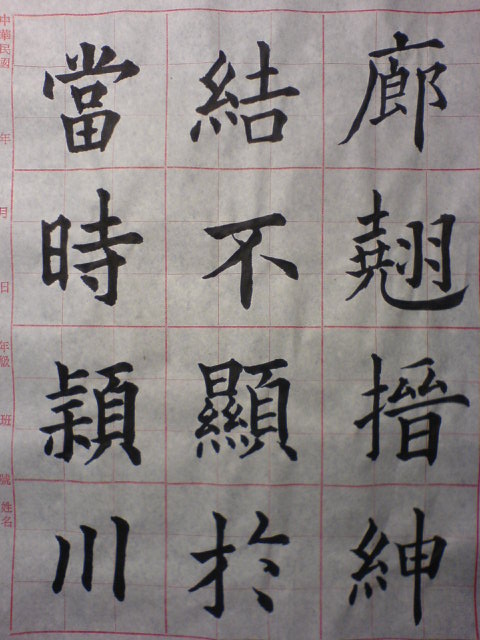 廊翹搢紳
結不顯於
當時潁川
中華民國 年 月 日 年級 班 號 姓名